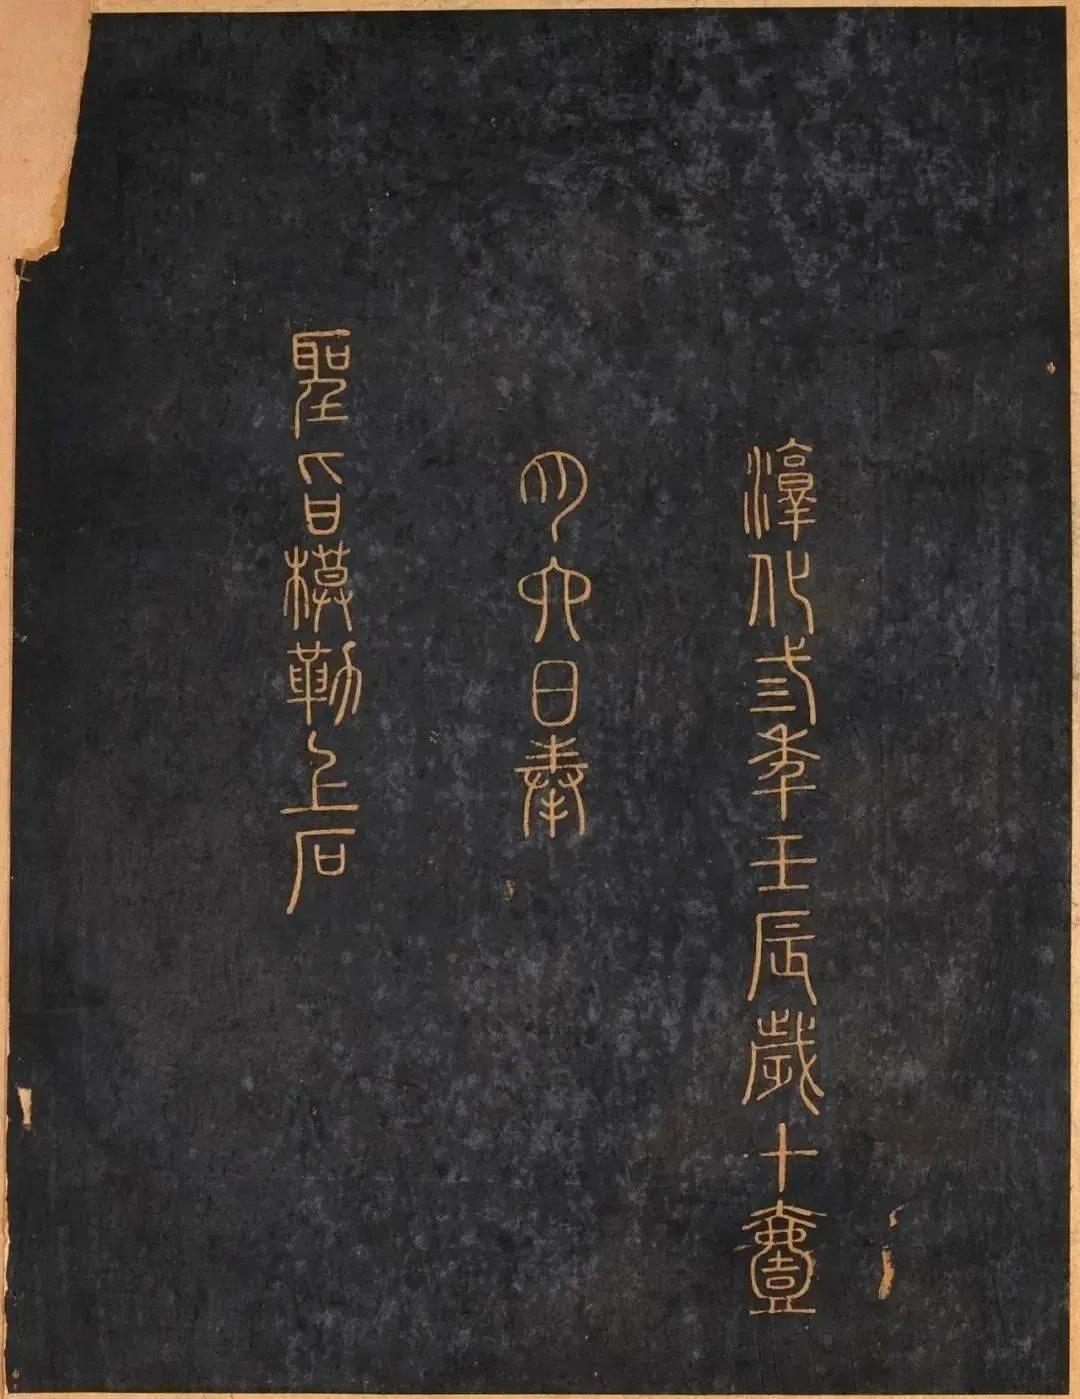 淳化叁年壬辰歲十壹
月六日奉
聖旨模勒上石